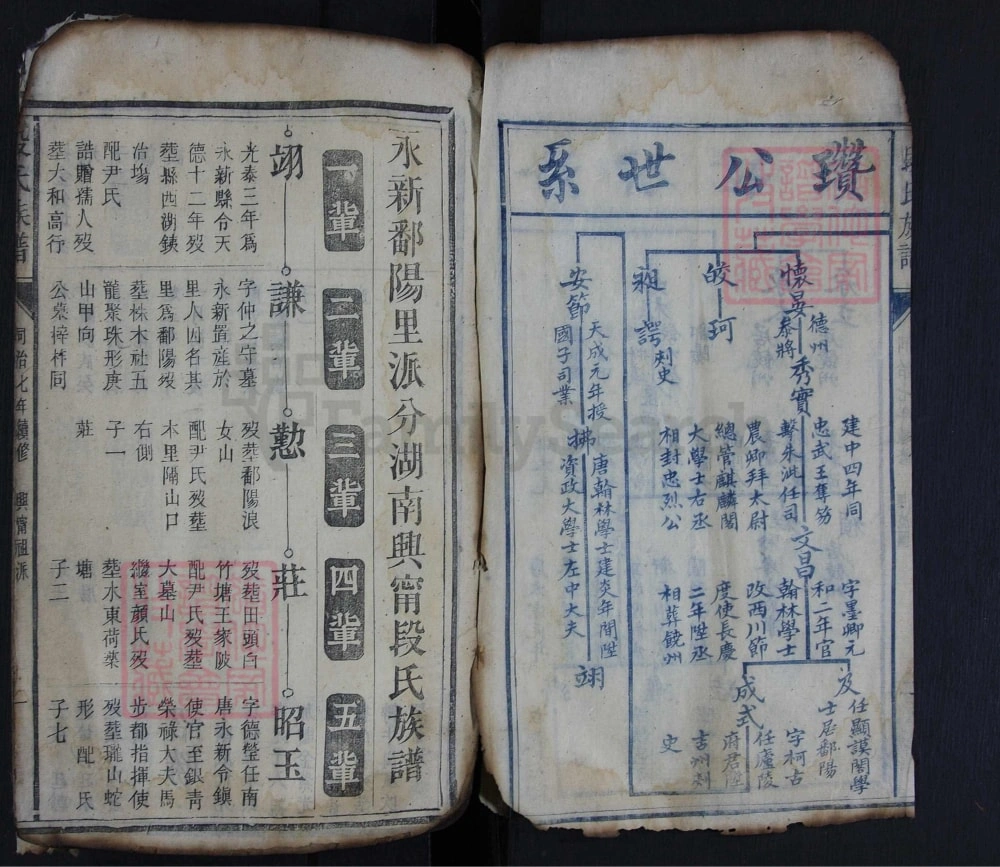 瓚公世系
懷晏 德州叅將
秀實 建中四年同
忠武王奪笏
擊朱泚任司
農卿拜太尉
總管麒麟閣
大學士右丞
相封忠烈公
文昌 字墨卿元
和二年官
翰林學士
改西川節
度使長慶
二年陞丞
相葬饒州
及 任顯謨閣學
士居鄱陽
成式 字柯古
任廬陵
府君陞
吉州刺
史
皎
珂
昶
諤 刺史
安節 大成元年授
國子司業
拂 唐翰林學士建炎年間陞
資政大學士左中大夫
翊
永新鄱陽里派分湖南興甯段氏族譜
一輩
二輩
三輩
四輩
五輩
翊
光泰三年爲
永新縣令天
德十二年歿
塟縣西湖銕
冶塲
配尹氏
誥贈孺人歿
塟大和高行
謙
字仲之守墓
永新置産於
里人因名其
里爲鄱陽歿
塟株木社五
龍聚珠形庚
山甲向
公桼梓杵同
勲
歿塟鄱陽浪
女山
配尹氏歿塟
本里隔山口
右側
子一
莊
莊
歿塟田頭白
竹塘王家陂
配尹氏歿塟
大墓山
繼室顔氏歿
塟水東荷葉
塘
子二
昭玉
字德瑩任南
唐永新令鎭
使官至銀青
榮祿大夫馬
步都指揮使
歿塟瓏山蛇
形 配 氏
子七
同治七年續修
興甯祖派
FamilySearch